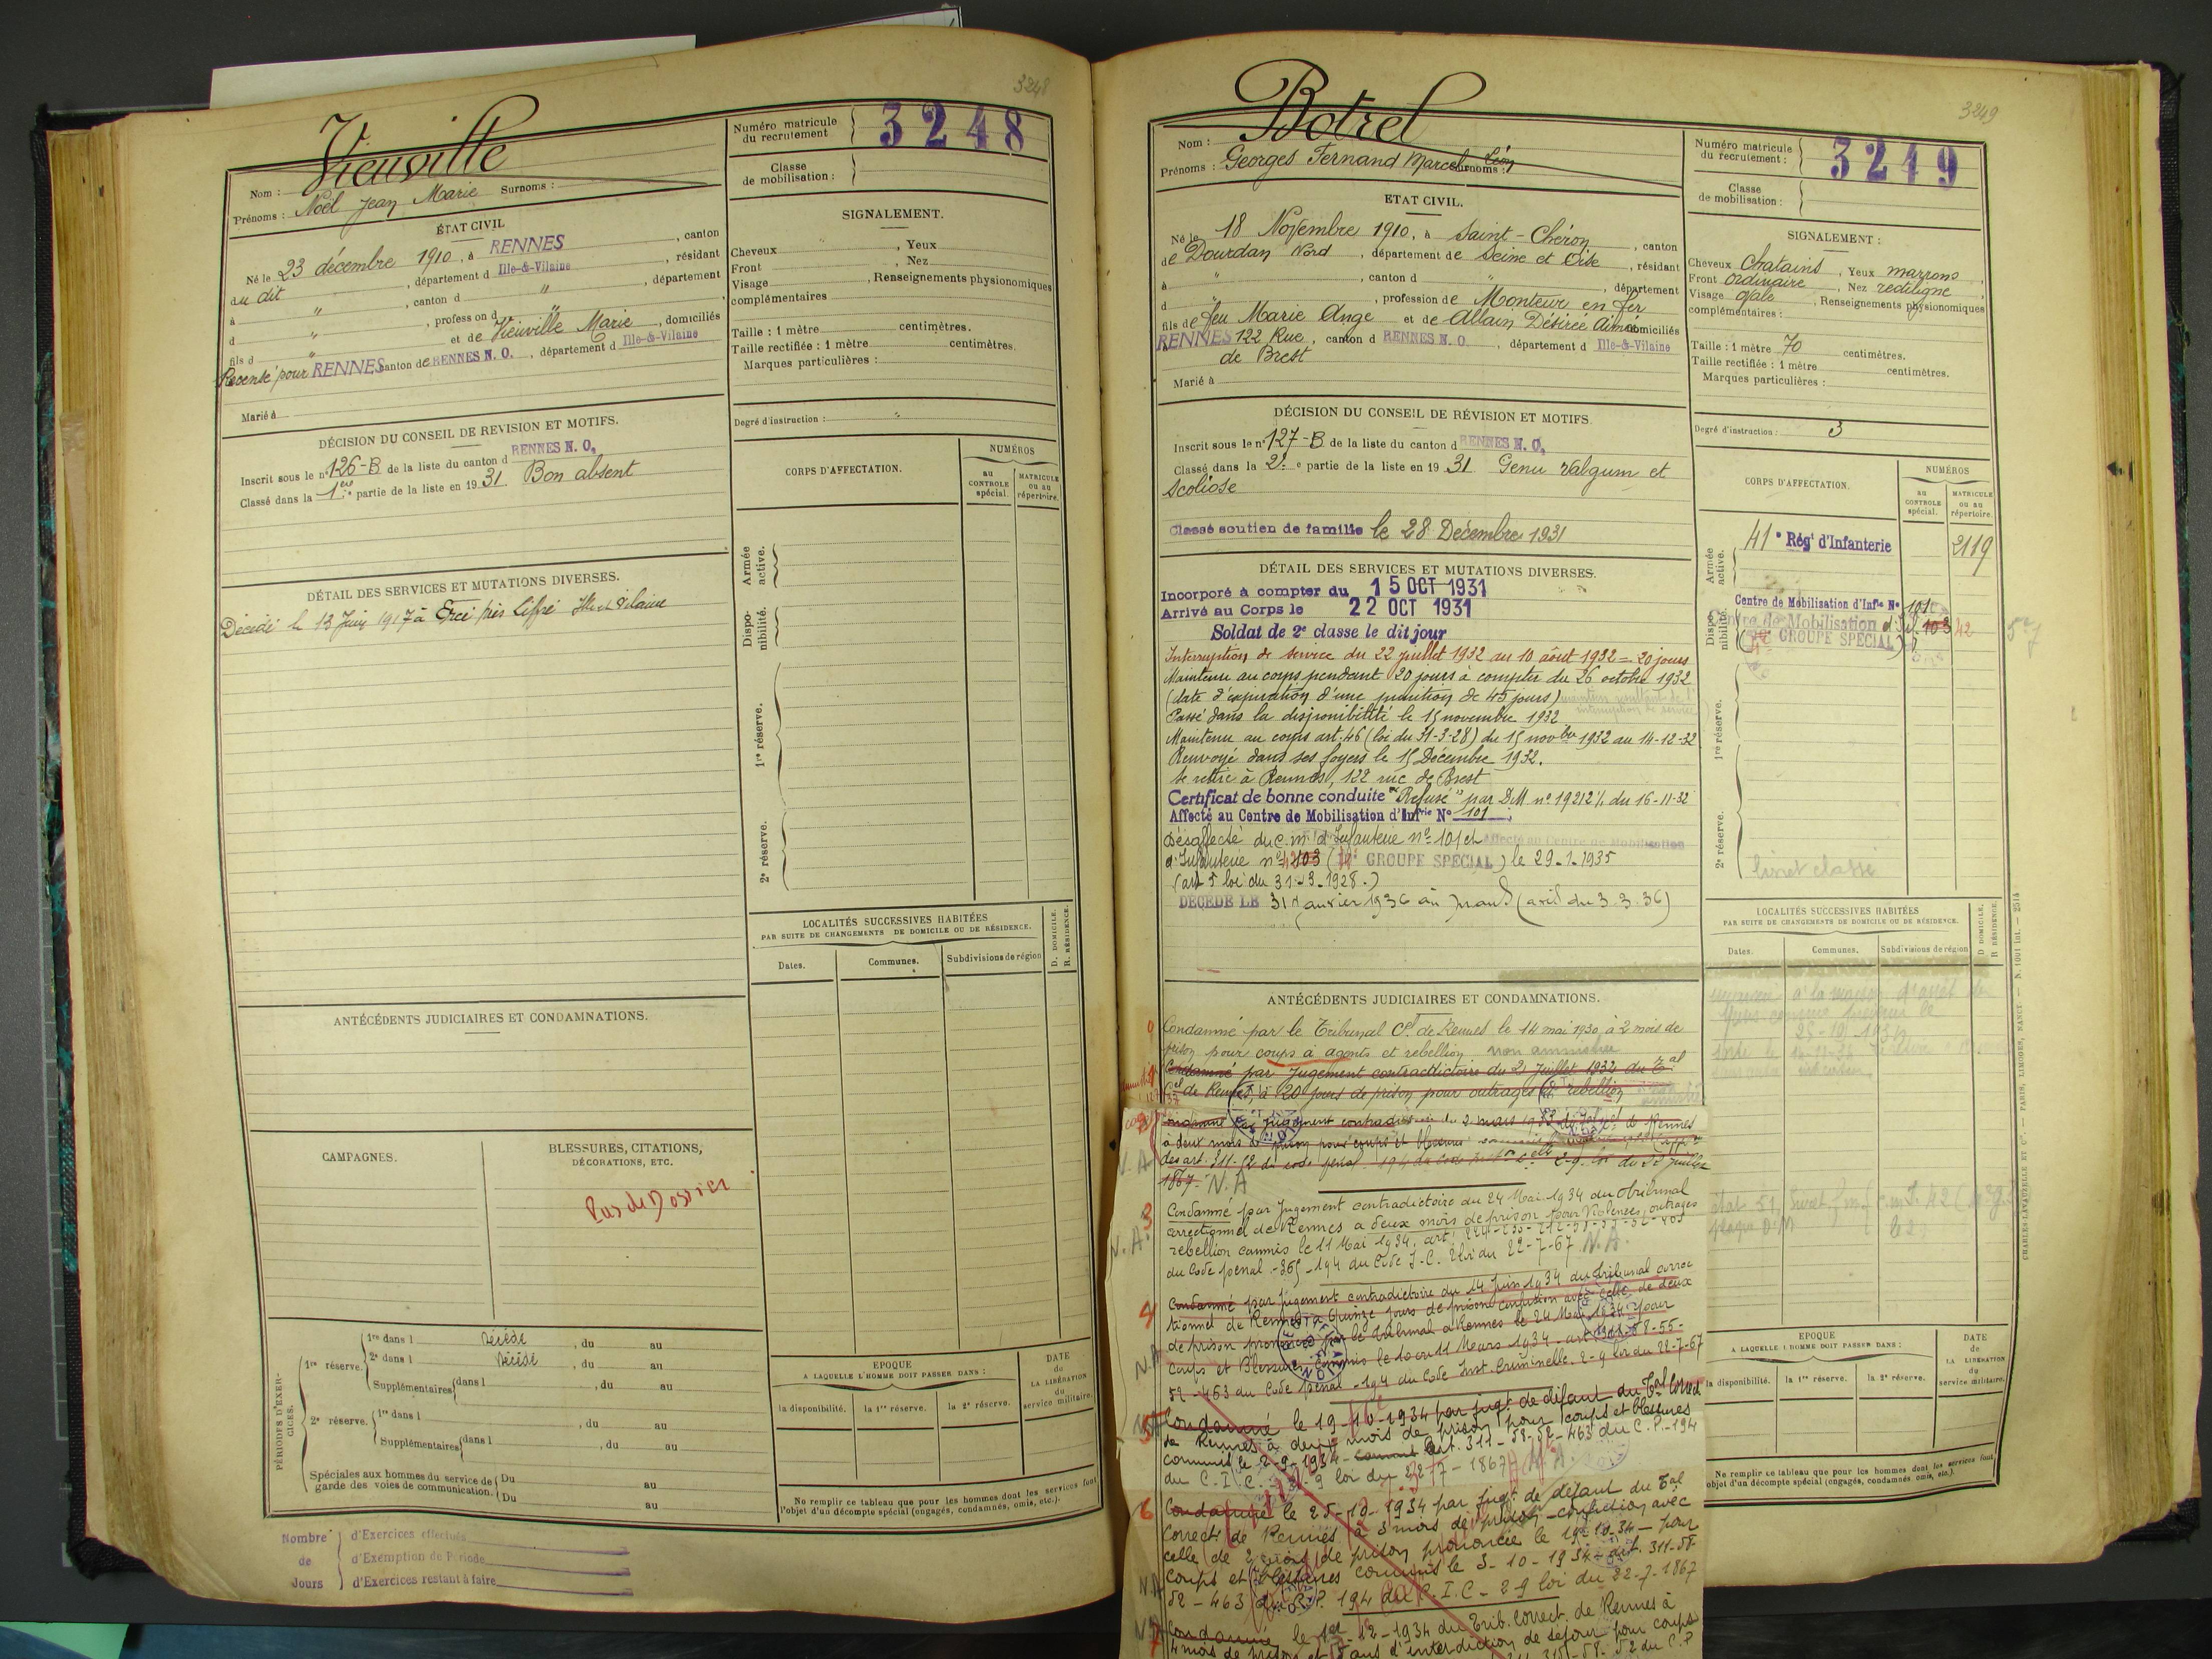 3248
Vieuville
Nom :
Prénoms : Noël Jean Marie Surnoms :
Numéro matricule du recrutement 3248
Classe de mobilisation :
ÉTAT CIVIL
Né le 23 décembre 1910, à RENNES, canton
du dit, département d Ille-&-Vilaine, résidant
à " , canton d " , département
d " , profession d "
fils d " et de Vieuville Marie, domiciliés
Recensé pour RENNES canton de RENNES N. O., département d Ille-&-Vilaine
Marié à
SIGNALEMENT.
Cheveux , Yeux
Front , Nez
Visage , Renseignements physionomiques
complémentaires
Taille : 1 mètre centimètres.
Taille rectifiée : 1 mètre centimètres.
Marques particulières :
Degré d'instruction : "
DÉCISION DU CONSEIL DE REVISION ET MOTIFS.
Inscrit sous le n° 126-B de la liste du canton d RENNES N. O.
Classé dans la 1ère partie de la liste en 1931. Bon absent
CORPS D'AFFECTATION.
NUMÉROS
au CONTROLE spécial.
MATRICULE ou au répertoire.
Armée active.
Disponibilité.
1re réserve.
2e réserve.
DÉTAIL DES SERVICES ET MUTATIONS DIVERSES.
Décédé le 13 Juin 1917 à Ercé près Liffré Ille et Vilaine
LOCALITÉS SUCCESSIVES HABITÉES
PAR SUITE DE CHANGEMENTS DE DOMICILE OU DE RÉSIDENCE.
Dates. Communes. Subdivisions de région
D. DOMICILE. R. RÉSIDENCE.
ANTÉCÉDENTS JUDICIAIRES ET CONDAMNATIONS.
CAMPAGNES.
BLESSURES, CITATIONS,
DÉCORATIONS, ETC.
Pas de Dossier
PÉRIODES D'EXERCICES.
1re réserve.
1re dans l décédé , du au
2e dans l décédé , du au
Supplémentaires dans l , du au
2e réserve.
1re dans l , du au
Supplémentaires dans l , du au
Spéciales aux hommes du service de garde des voies de communication. Du au
Du au
EPOQUE
A LAQUELLE L'HOMME DOIT PASSER DANS :
la disponibilité. la 1re réserve. la 2e réserve.
DATE de LA LIBÉRATION du service militaire.
Ne remplir ce tableau que pour les hommes dont les services font l'objet d'un décompte spécial (engagés, condamnés, omis, etc.).
Nombre de Jours
d'Exercices effectués
d'Exemption de Période
d'Exercices restant à faire
3249
Botrel
Nom :
Prénoms : Georges Fernand Marcel Léon Surnoms :
Numéro matricule du recrutement : 3249
Classe de mobilisation :
ETAT CIVIL.
Né le 18 Novembre 1910, à Saint-Chéron, canton
de Dourdan Nord, département de Seine et Oise, résidant
à " , canton d " , département
d " , profession de Monteur en fer
fils de feu Marie Ange et de Allain Désirée Aimée domiciliés
RENNES 122 Rue, canton d RENNES N. O., département d Ille-&-Vilaine
de Brest
Marié à
SIGNALEMENT :
Cheveux Chatains, Yeux marrons
Front ordinaire, Nez rectiligne
Visage ovale, Renseignements physionomiques
complémentaires :
Taille : 1 mètre 70 centimètres.
Taille rectifiée : 1 mètre centimètres.
Marques particulières :
Degré d'instruction : 3
DÉCISION DU CONSEIL DE RÉVISION ET MOTIFS.
Inscrit sous le n° 127-B de la liste du canton d RENNES N. O.
Classé dans la 2e partie de la liste en 1931 Genu valgum et
scoliose
Classé soutien de famille le 28 Décembre 1931
CORPS D'AFFECTATION.
NUMÉROS
au CONTROLE spécial.
MATRICULE ou au répertoire.
Armée active.
41e Régt d'Infanterie 2119
Disponibilité.
Centre de Mobilisation d'Infie No 101
Centre de Mobilisation d'Inf. 103 42
GROUPE SPECIAL
1re réserve.
2e réserve.
livret classé
DÉTAIL DES SERVICES ET MUTATIONS DIVERSES.
Incorporé à compter du 15 OCT 1931
Arrivé au Corps le 22 OCT 1931
Soldat de 2e classe le dit jour
Interruption de service du 22 juillet 1932 au 10 août 1932 = 20 jours
Maintenu au corps pendant 20 jours à compter du 26 octobre 1932
(date d'expiration d'une punition de 45 jours)
Passé dans la disponibilité le 15 novembre 1932
Maintenu au corps art. 46 (loi du 31-3-28) du 15 novbre 1932 au 14-12-32
Renvoyé dans ses foyers le 15 Décembre 1932.
Se retire à Rennes, 122 rue de Brest
Certificat de bonne conduite "Refusé" par DM n° 19212 1/ du 16-11-32
Affecté au Centre de Mobilisation d'Infrie No 101
Désaffecté du c.m. d'Infanterie n° 101 et Affecté au Centre de Mobilisation
d'Infanterie n° 42 103 (GROUPE SPECIAL) le 29-1-1935
(art 5 loi du 31-3-1928.)
DÉCÉDÉ LE 31 Janvier 1936 au Mans (avis du 3.3.36)
LOCALITÉS SUCCESSIVES HABITÉES
PAR SUITE DE CHANGEMENTS DE DOMICILE OU DE RÉSIDENCE.
Dates. Communes. Subdivisions de région
D DOMICILE. R RÉSIDENCE.
ANTÉCÉDENTS JUDICIAIRES ET CONDAMNATIONS.
Condamné par le Tribunal Cel de Rennes le 14 mai 1930, à 2 mois de
prison pour coups à agents et rebellion. non amnistiée
Condamné par Jugement contradictoire du 21 Juillet 1932 du Tal
Cel de Rennes, à 20 jours de prison pour outrages et rebellion
Condamné par Jugement contradictoire du 2 mars 1933 de Rennes
à deux mois de prison pour coups et blessures
des art. 311-52 du code pénal 194 2-9 loi du 22 juillet
1867. N.A
3 Condamné par Jugement contradictoire du 24 Mai 1934 du Tribunal
correctionnel de Rennes à deux mois de prison pour Violences, outrages
rebellion commis le 11 Mai 1934. art.
du Code pénal -365-194 du Code I.C. 2 loi du 22-7-67 N.A.
4 Condamné par jugement contradictoire du 14 Juin 1934 du Tribunal correc
tionnel de Rennes à Quinze jours de prison confusion avec celle de deux
de prison prononcée par le Tribunal de Rennes le 24 Mai 1934 pour
coups et Blessures commis le 10 ou 11 Mars 1934 - art 311-58-55-
52-463 du Code pénal -194 du Code Inst. Criminelle. 2-9 loi du 22-7-67
5 Condamné le 19-10-1934 par jugt de défaut du Tal Correct
de Rennes à deux mois de prison pour coups et blessures
commis le 2-9-1934 - art. 311-58-52-463 du C.P.-194
du C.I.C. 2-9 loi du 22-7-1867 N.A.
6 Condamné le 25-10-1934 par jugt de défaut du Tal
Correct. de Rennes à 3 mois de prison - confusion avec
celle de 2 mois de prison prononcée le 19-10-34 - pour
coups et blessures commis le 3-10-1934 - art. 311-58-
52-463 du C.P. 194 du C.I.C - 2-9 loi du 22-7-1867
7 Condamné le 1er-12-1934 du Trib. Correct. de Rennes à
4 mois de prison et 5 ans d'interdiction de séjour pour coups
EPOQUE
A LAQUELLE L'HOMME DOIT PASSER DANS :
la disponibilité. la 1re réserve. la 2e réserve.
DATE de LA LIBERATION du service militaire.
Ne remplir ce tableau que pour les hommes dont les services font
objet d'un décompte spécial (engagés, condamnés omis, etc.).
CHARLES-LAVAUZELLE ET Cie. — PARIS, LIMOGES, NANCY